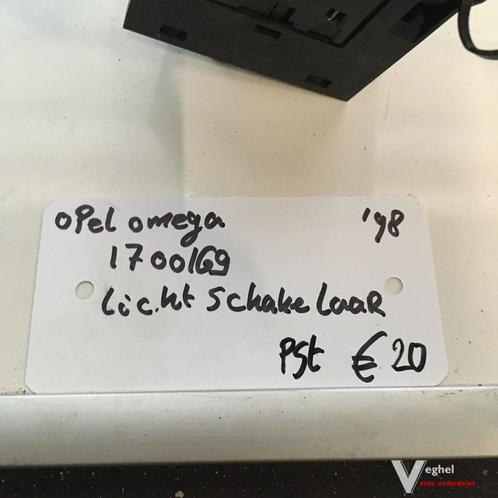 opel omega '98
1700169
Licht Schakelaar
Pst € 20
Veghel
auto onderdelen